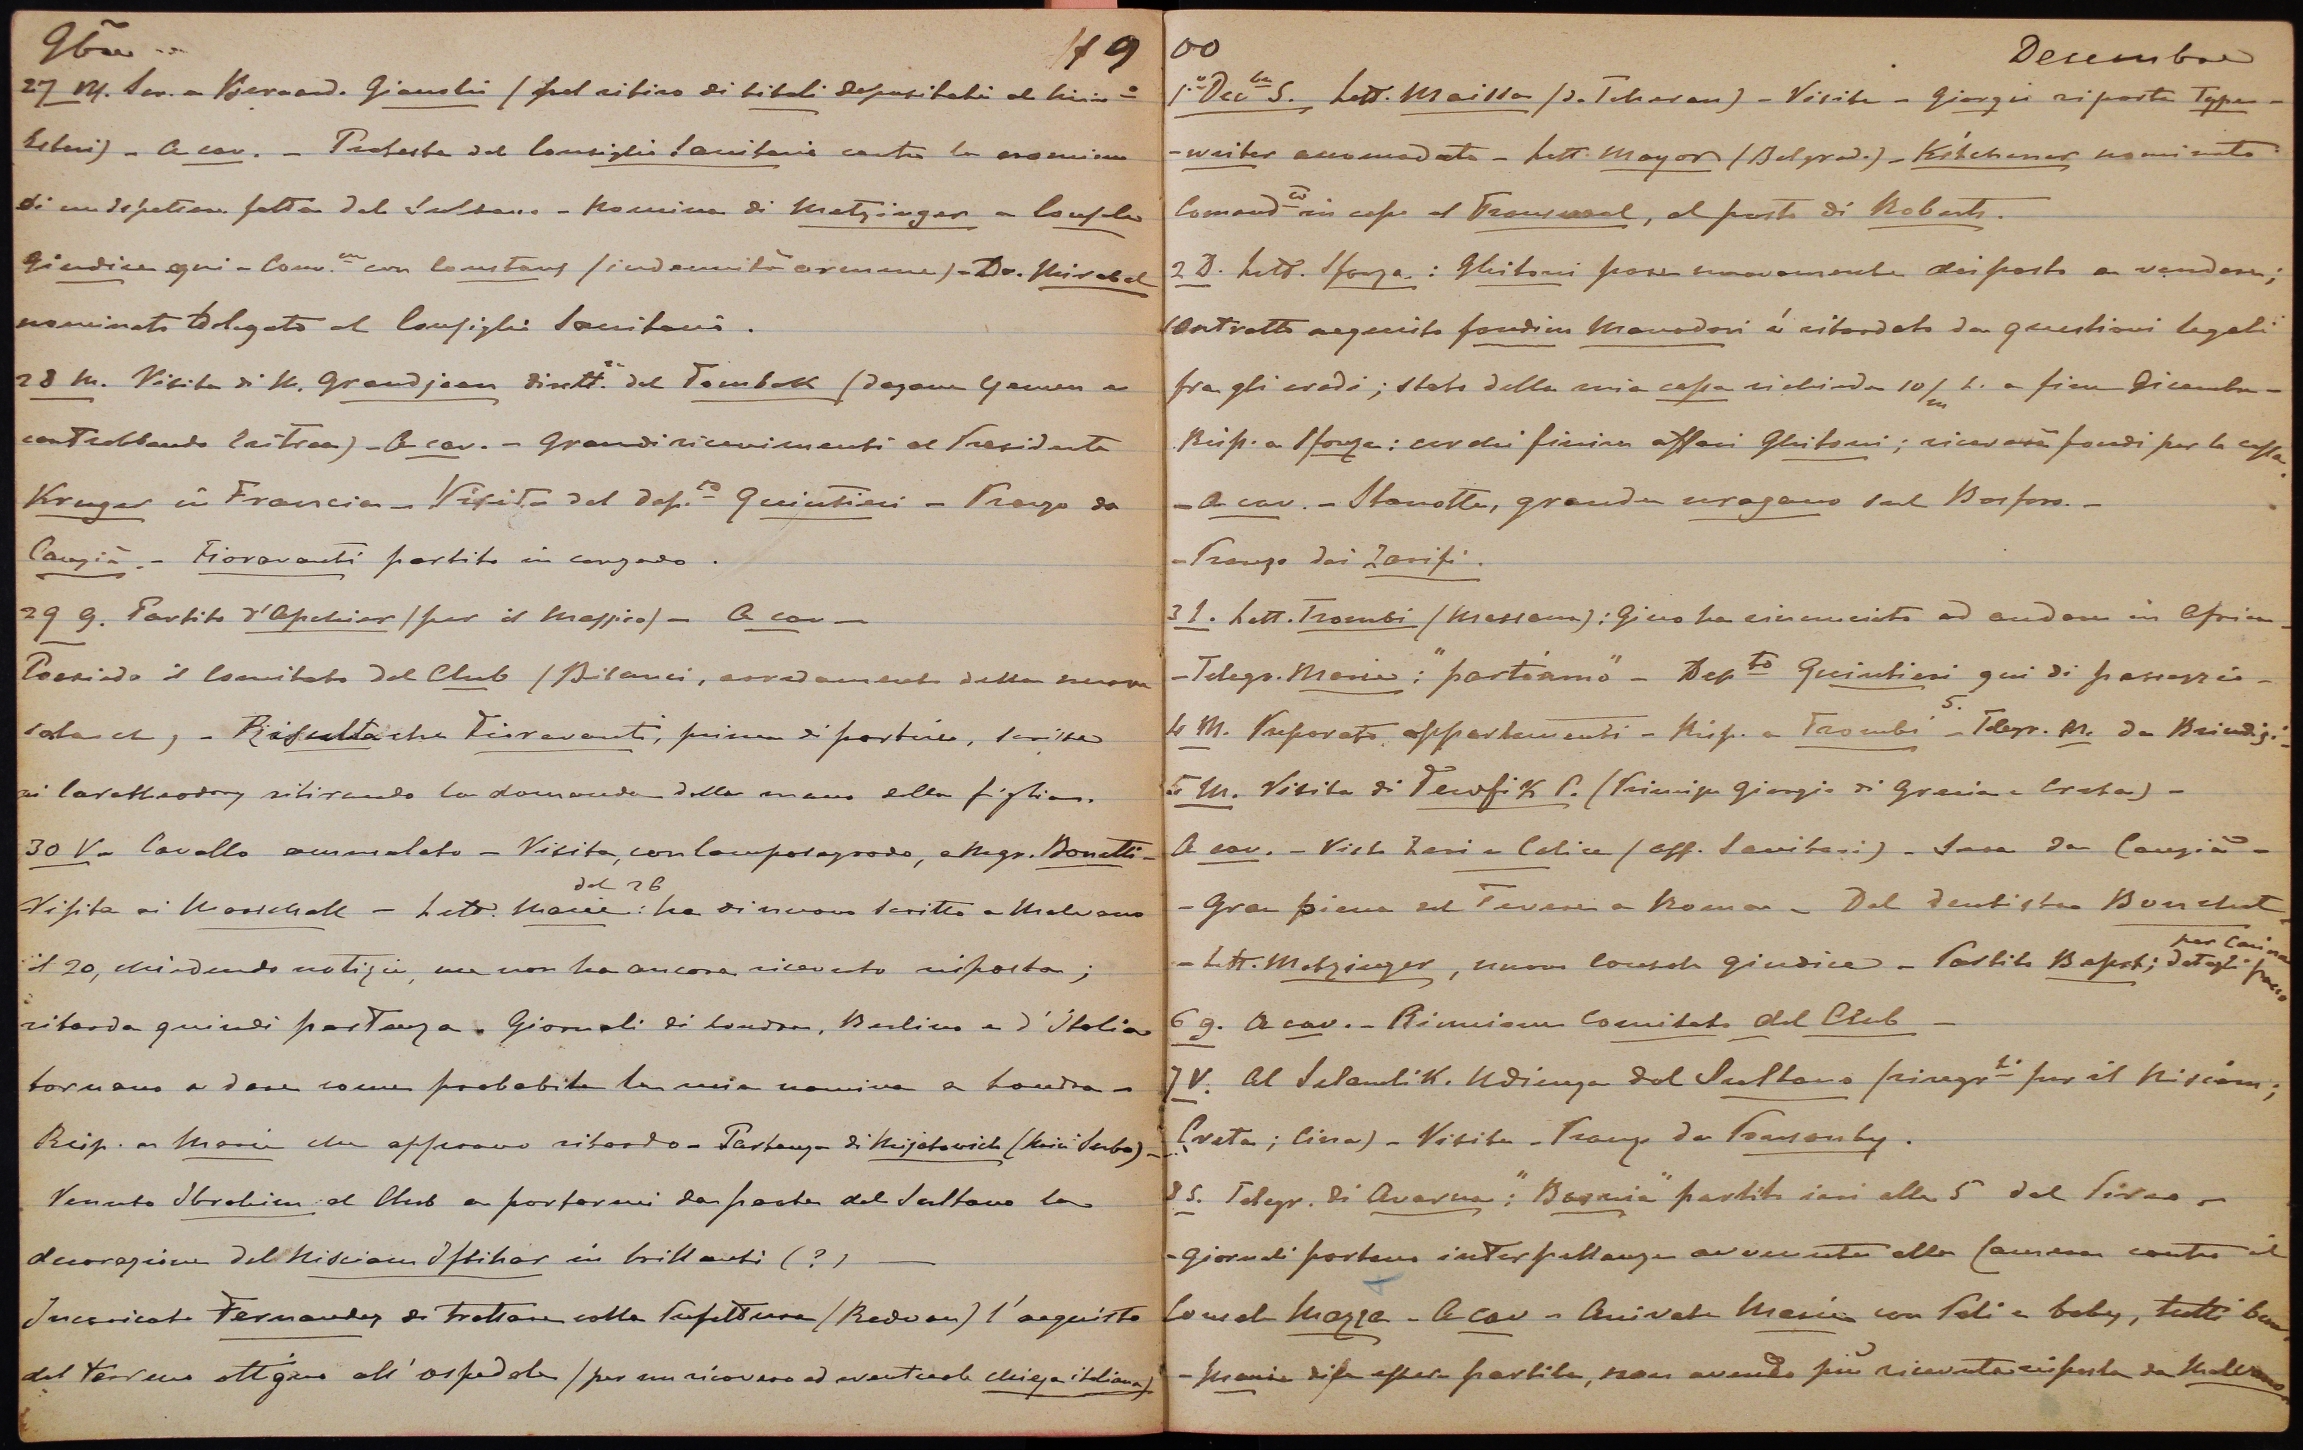 9bre 19
27 M. Scr. a Bernard. Giaustri (pel ritiro di titoli depositati al Mini-
steri) - A cav. - Protesta del Consiglio Sanitario contro la
di un fatta dal Sultano - Nomina di Metzinger a Console
Giudice qui - Conv.ne con Constans (indennità armene) - Dr. Mirabel
nominato Delegato al Consiglio Sanitario.
28 M. Visita di M. Grandjean dirett.re del Tombak (dogane Yemen e
contrabbando Eritrea) - A cav. - Grandi ricevimenti al Presidente
Kruger in Francia - Visita del Dep.to Quintieri - Pranzo da
Cangià. - Fioravanti partito in congedo.
29 G. Partito d'Apchier (per il Messico) - A cav -
Presiedo il Comitato del Club (Bilanci, arredamento della nuova
sala etc) - Risulta che Fioravanti, prima di partire, scrisse
ai Caratheodory ritirando la domanda della mano della figlia.
30 V. Cavallo ammalato - Visita, con Camposagrado, a Mgr. Bonetti -
Visita ai Marschall - Lett. Marie del 26: ha di nuovo scritto a Malvano
il 20, chiedendo notizie, ma non ha ancora ricevuto risposta;
ritarda quindi partenza. Giornali di Londra, Berlino e d'Italia
tornano a dare come probabile la mia nomina a Londra -
Risp. a Marie che approvo ritardo - Partenza di Mijatovich (Min. Serbo) -
Venuto Ibrahim al Club a portarmi da parte del Sultano la
decorazione del Nisciam Iftihar in brillanti (?) -
Incaricato Fernandez di trattare colla Prefettura (Redvan) l'acquisto
del terreno attiguo all'ospedale (per un ricovero ed eventuale chiesa italiana)
00 Decembre
1° Dec.bre S. Lett. Maissa (da Teheran) - Visite - Giorgio riporta Type-
-writer accomodato - Lett. Mayor (Belgrado) - Kitchener nominato
Comand.te in capo al Transvaal, al posto di Roberts.
2 D. Lett. Sforza: Ghitoni pare nuovamente disposto a vendere;
contratto acquisto fondino Manodori è ritardato da questioni legali
fra gli eredi; stato della mia cassa richiede 10/m L. a fine Dicembre -
Risp. a Sforza: cerchi finire affari Ghitoni; riceverà fondi per la cassa.
- A cav. - Stanotte, grande uragano sul Bosforo. -
- Pranzo dai Zarifi.
3 L. Lett. Trombi (Massaua): Gino ha rinunciato ad andare in Africa -
- Telegr. Marie: "partiamo" - Dep.to Quintieri qui di passaggio -
4 M. Preparato appartamenti - Risp. a Trombi - Telegr. M. da Brindisi -
5 M. Visita di Tewfik P. (Principe Giorgio di Grecia e Creta) -
A cav. - Visti Zeri e Celice (aff. Sanitari) - Sera da Cangià -
- Gran piena del Tevere a Roma - Dal dentista Bouchut -
- Lett. Metzinger, nuovo console giudice - Partito Bapst; per Caimano passo
6 G. A cav. - Riunione Comitato del Club -
7 V. Al Selamlik. Udienza dal Sultano (ringr.ti per il Nisciam;
Creta; Cina) - Visite - Pranzo da Ponsonby.
8 S. Telegr. di Avarna: "Bosnia" partito ieri alle 5 dal Pireo -
- Giornali portano interpellanza avvenuta alla Camera contro il
Console Mazza - A cav - Arrivata Marie con Peli e baby, tutti bene,
- Marie dice essere partita, non avendo più ricevuta risposta da Malvano